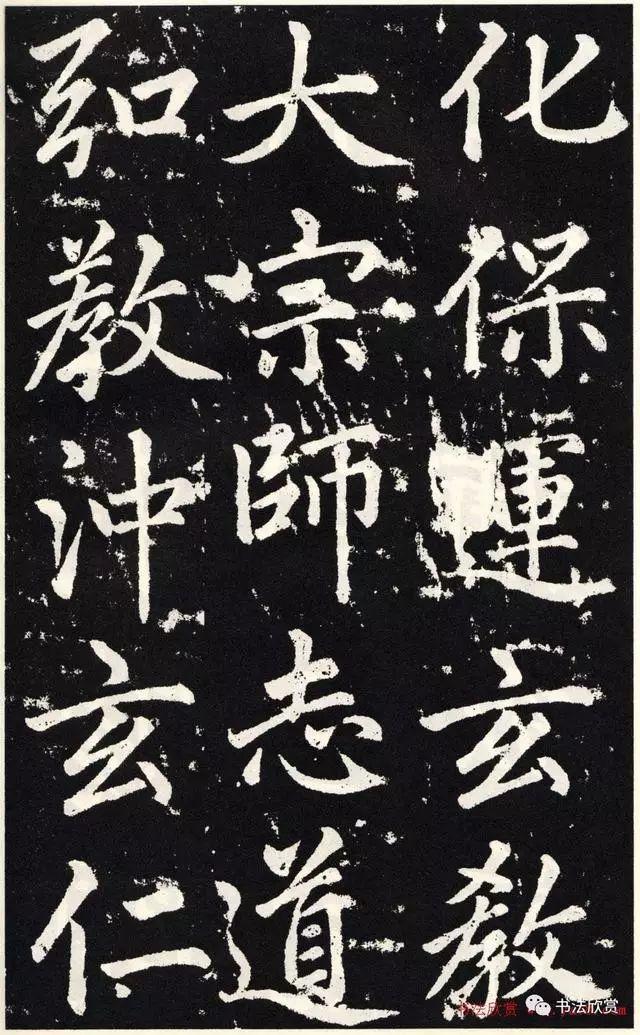 化保運玄教
大宗師志道
弘教沖玄仁
书法欣赏
书法欣赏